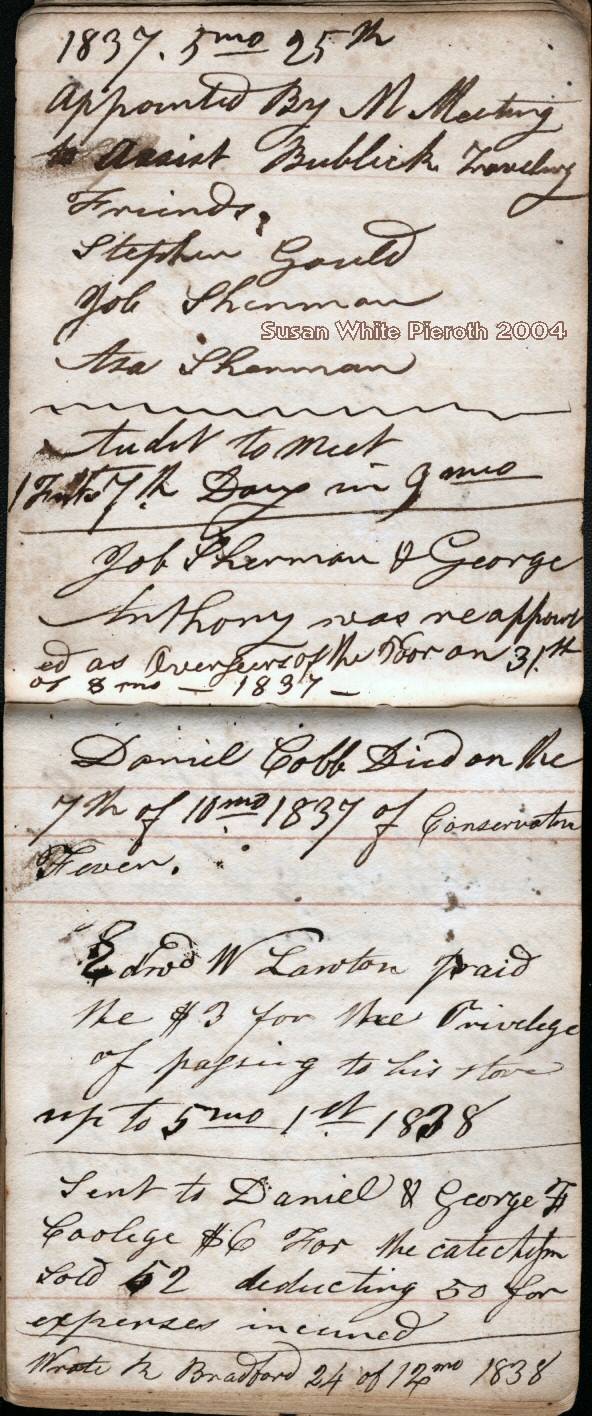 1837. 5mo 25th
Appointed By M Meeting
to Assist Publick Traveling
Friends,
Stephen Gould
Job Sherman
Susan White Pieroth 2004
Asa Sherman
Audit to meet
7th Days in 9 mo
Job Sherman & George
Anthony was reappoint
ed as Overseers of the Poor on 31th
of 8 mo — 1837 —
Daniel Cobb Died on the
7th of 10mo 1837 of
Fever.
Edwd W Lawton paid
the $3 for the Privelege
of passing to his store
up to 5mo 1st 1838
Sent to Daniel & George F
Coolege $6 For the catechism
Sold 52 deducting 50 for
expenses incured
Wrote R Bradford 24 of 12mo 1838